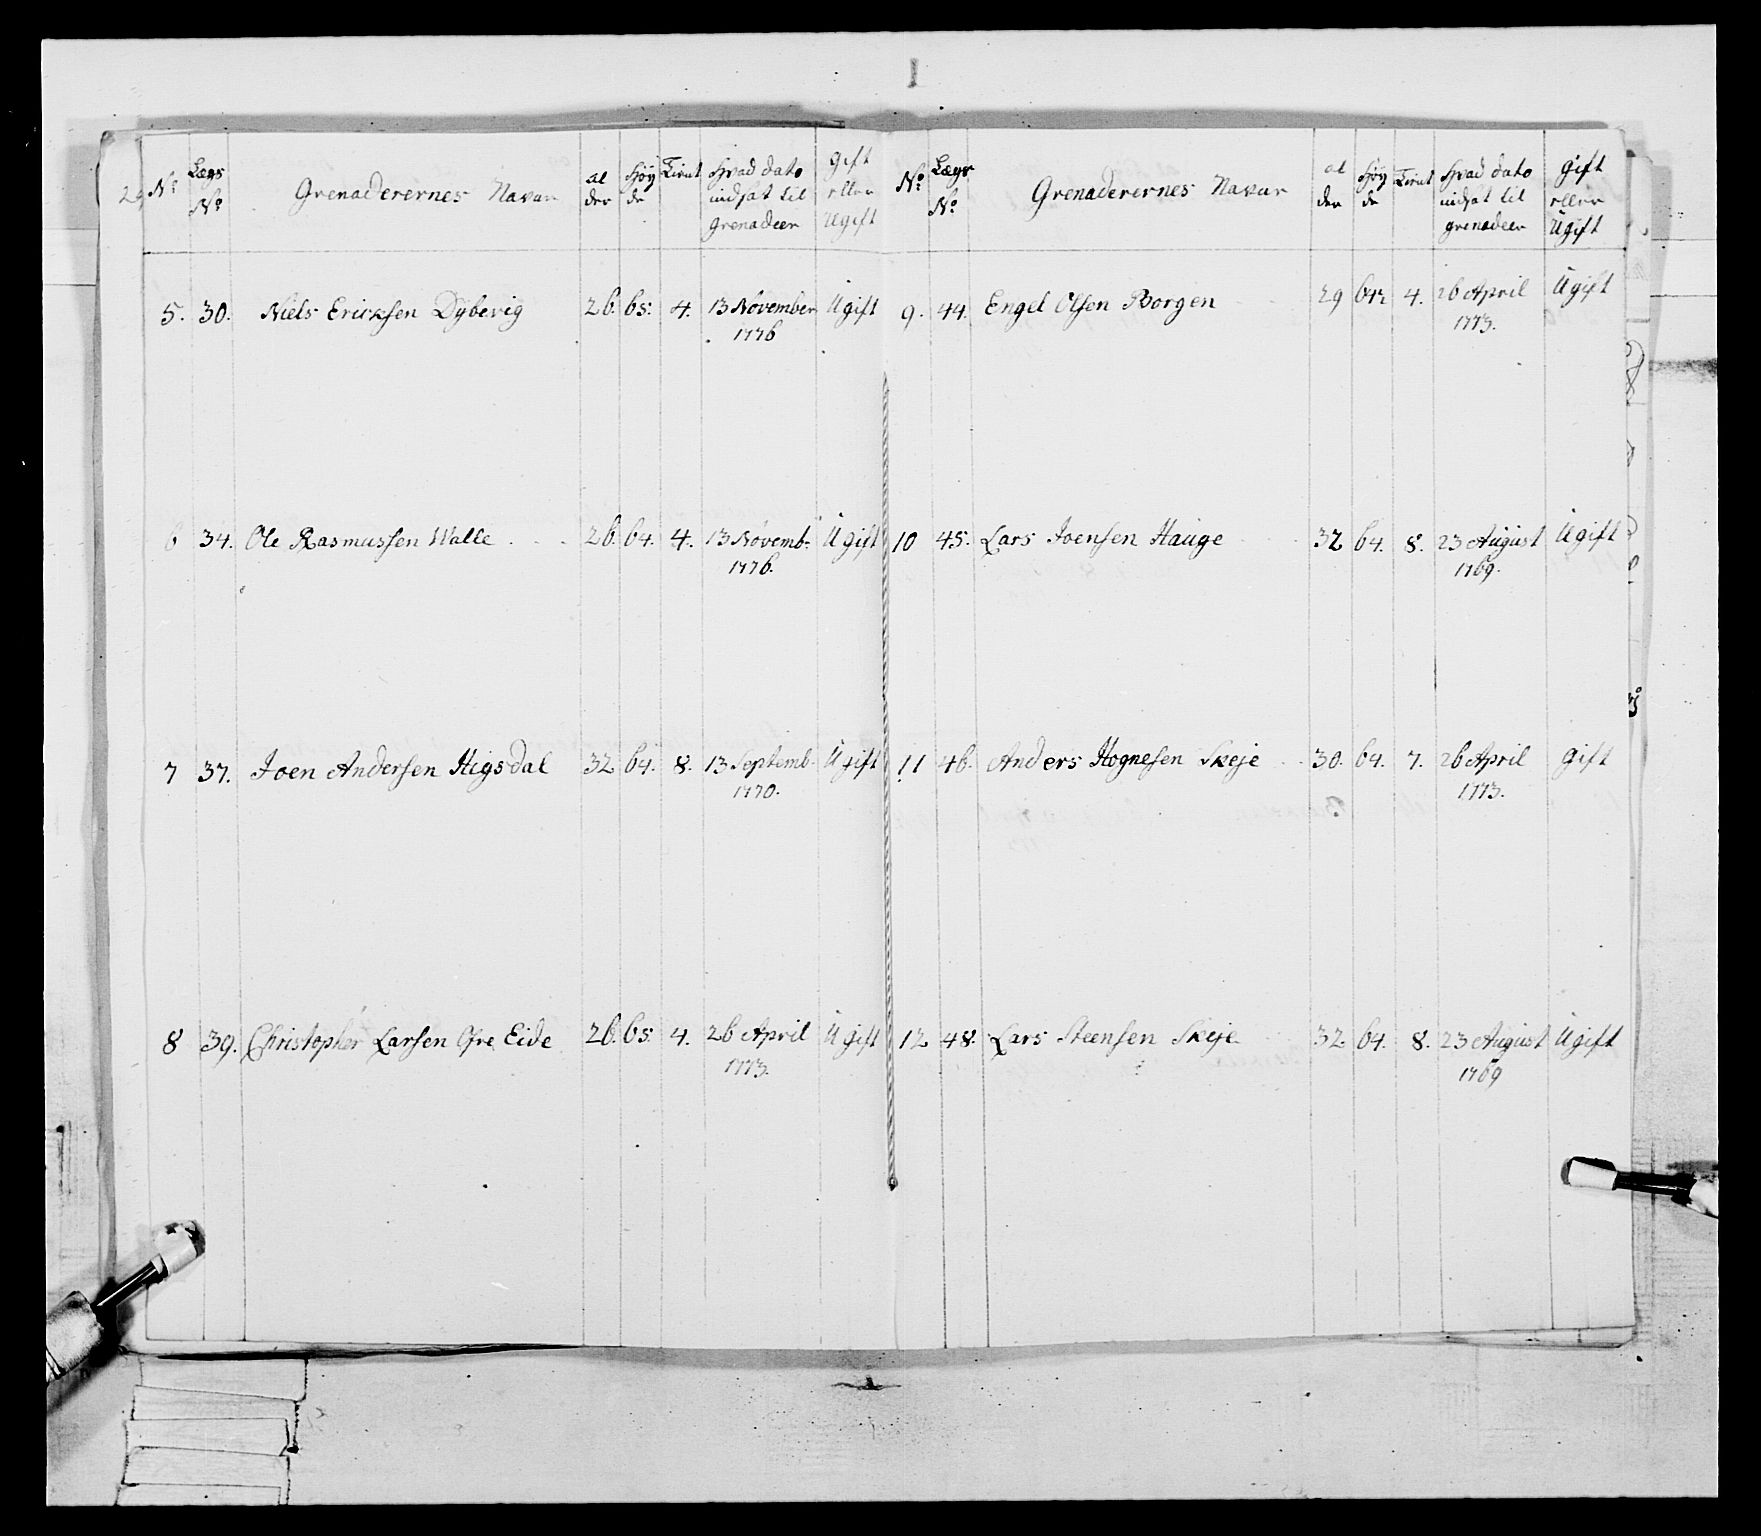 No Lægs No Grenaderernes Navne al der Høy de Tient Hvad dato indsat til grenadeer gift eller Ugift
5. 30. Niels Ericksen Dybevig 26. 65. 4. 13 November 1776 Ugift
6 34. Ole Rasmussen Walle 26. 64. 4. 13 Novemb: 1776. Ugift
7 37. Joen Andersen Higsdal 32 64. 8. 13 Septemb. 1770. Ugift
8 39. Christopher Larsen Øfre Eide 26. 65. 4. 26 April 1773. Ugift
No Lægs No Grenaderernes Navne al der Høy de Tient Hvad dato indsat til grenadeer gift eller Ugift
9. 44. Engel Olsen Borgen 29 64½ 4. 26 April 1773. Ugift
10 45. Lars Joensen Hauge 32 64. 8. 23 August 1769. Ugift
11 46. Anders Hognesen Skeje 30. 64. 7. 26 April 1773. gift
12 48. Lars Steensen Skeje 32. 64. 8. 23 August 1769 Ugift